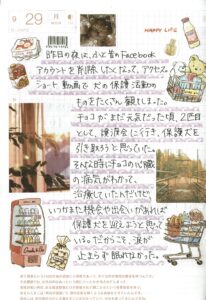 9 29 月
HAPPY LIFE
昨日の夜は、ふと昔のFacebook
アカウントを削除したくなって、アクセス。
ショート動画で犬の保護活動の
ものをたくさん観てしまった。
チョコがまだ元気だった頃、2匹目
として、譲渡会に行き、保護犬を
引き取ろうと思っていた。
そんな時にチョコの心臓
の病気がわかって、
治療していたんだけど
いつかまた機会や出会いがあれば
保護犬を迎えようと思って
いる。だからこそ、涙が
止まらず眠れなかった。